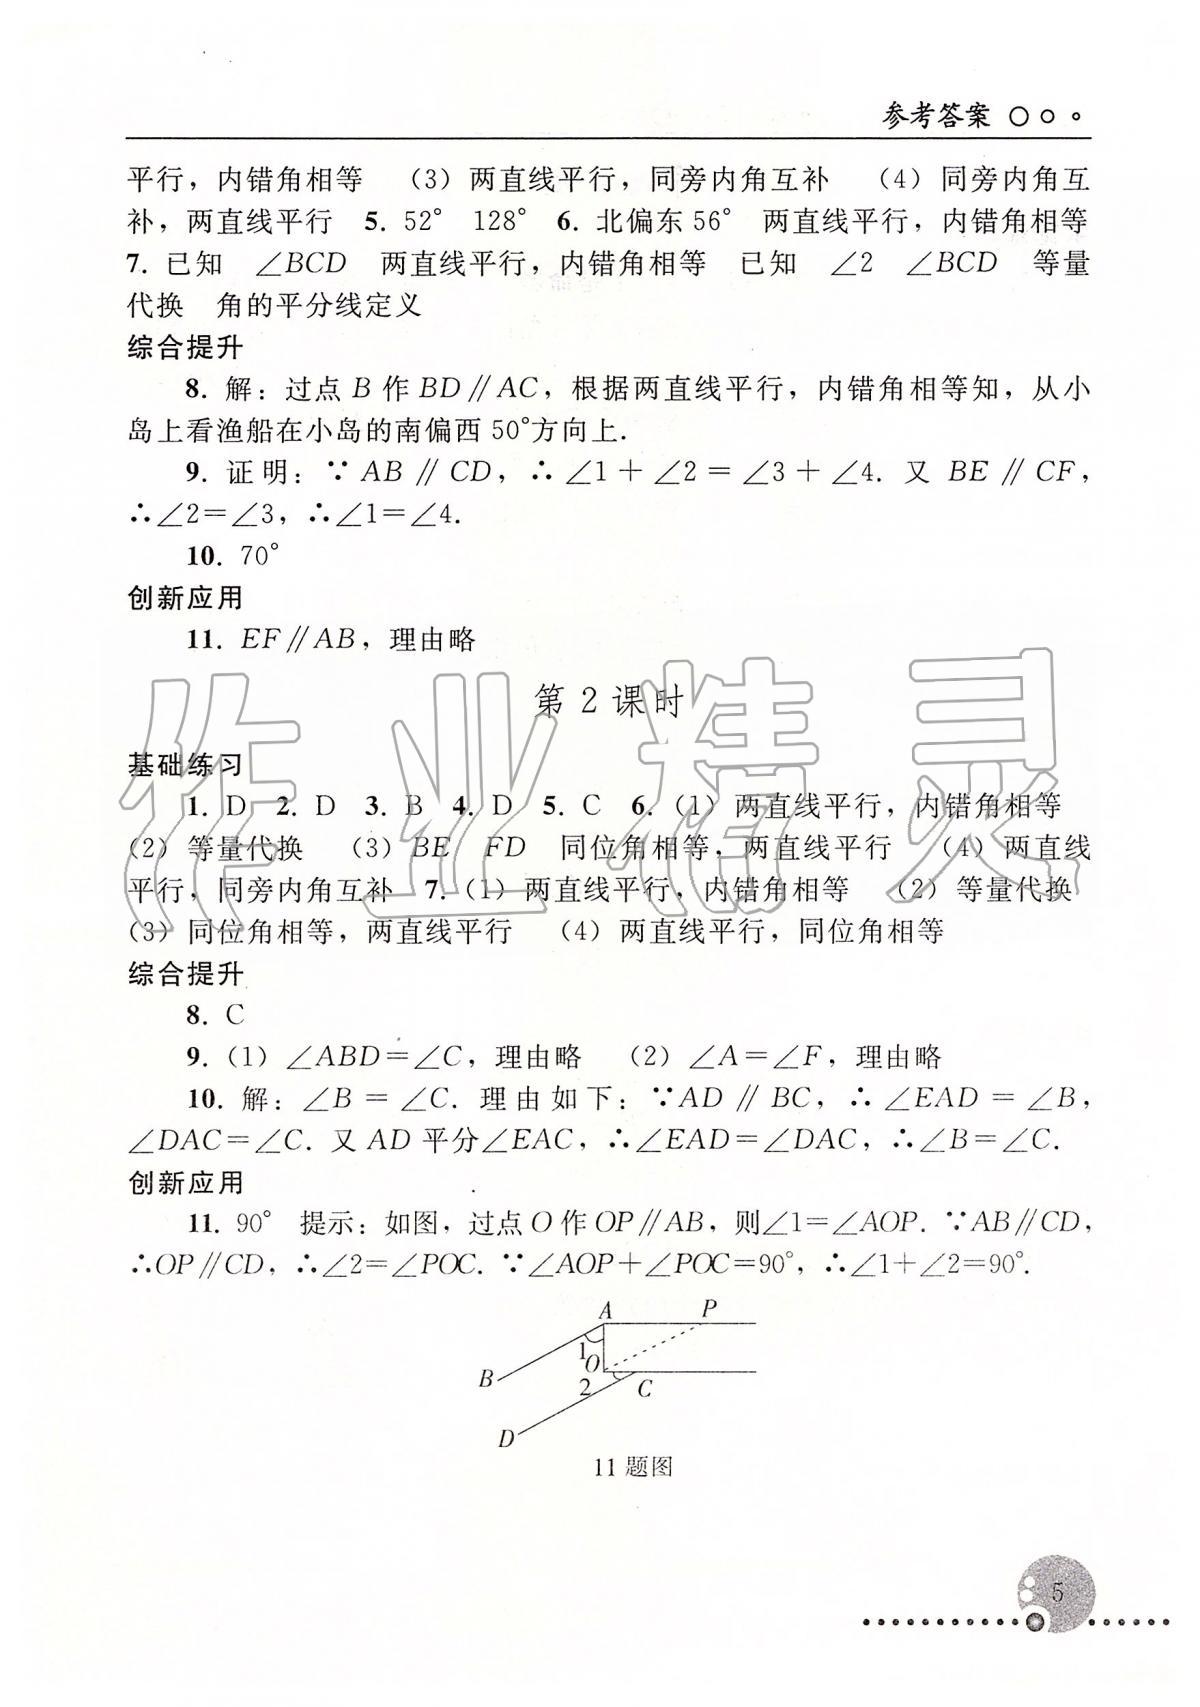 参考答案
平行，内错角相等 （3）两直线平行，同旁内角互补 （4）同旁内角互
补，两直线平行 5. 52° 128° 6. 北偏东56° 两直线平行，内错角相等
7. 已知 ∠BCD 两直线平行，内错角相等 已知 ∠2 ∠BCD 等量
代换 角的平分线定义
综合提升
8. 解：过点 B 作 BD∥AC，根据两直线平行，内错角相等知，从小
岛上看渔船在小岛的南偏西 50°方向上.
9. 证明：∵ AB∥CD，∴∠1＋∠2＝∠3＋∠4. 又 BE∥CF，
∴∠2＝∠3，∴∠1＝∠4.
10. 70°
创新应用
11. EF∥AB，理由略
第 2 课时
基础练习
1. D 2. D 3. B 4. D 5. C 6.（1）两直线平行，内错角相等
（2）等量代换 （3）BE FD 同位角相等，两直线平行 （4）两直线
平行，同旁内角互补 7.（1）两直线平行，内错角相等 （2）等量代换
（3）同位角相等，两直线平行 （4）两直线平行，同位角相等
综合提升
8. C
9.（1）∠ABD＝∠C，理由略 （2）∠A＝∠F，理由略
10. 解：∠B＝∠C. 理由如下：∵AD∥BC，∴∠EAD＝∠B，
∠DAC＝∠C. 又 AD 平分∠EAC，∴∠EAD＝∠DAC，∴∠B＝∠C.
创新应用
11. 90° 提示：如图，过点 O 作 OP∥AB，则∠1＝∠AOP. ∵AB∥CD，
∴OP∥CD，∴∠2＝∠POC. ∵∠AOP＋∠POC＝90°，∴∠1＋∠2＝90°.
A P
1
O
B
2 C
D
11 题图
5
作业精灵